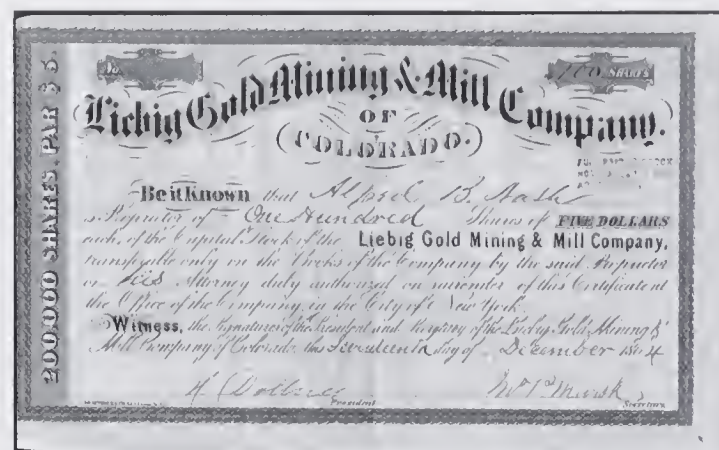 200,000 SHARES, PAR $5.
No
100 SHARES
Liebig Gold Mining & Mill Company.
OF
(COLORADO.)
Be it Known that Alfred B. Nash
is Proprietor of One Hundred Shares of FIVE DOLLARS
each, of the Capital Stock of the Liebig Gold Mining & Mill Company,
transferable only on the Books of the Company by the said Proprietor
or his Attorney duly authorized on surrender of this Certificate at
the Office of the Company, in the City of New York.
Witness, the Signatures of the President and Secretary of the Liebig Gold Mining &
Mill Company of Colorado, this Seventeenth day of December 1864
President
Secretary